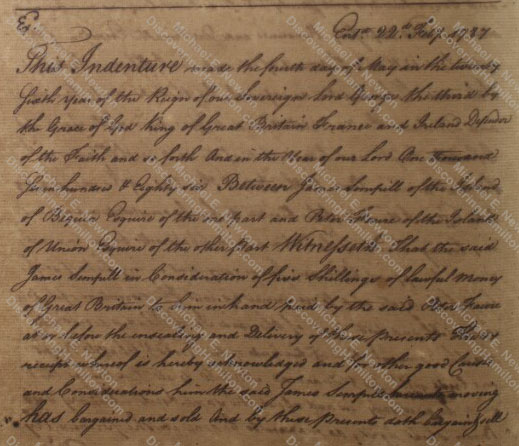 E
Entd. 22d. Feby. 1787
This Indenture made the fourth day of May in the twenty
Sixth Year of the Reign of our Sovereign Lord George the third by
the Grace of God King of Great Britain France and Ireland Defender
of the Faith and so forth And in the Year of our Lord One thousand
Seven hundred & Eighty six Between James Sempill of the Island
of Bequia Esquire of the one part and Peter of the Island
of Union Esquire of the other part Witnesseth That the said
James Sempill in Consideration of five Shillings of lawful Money
of Great Britain to him in hand paid by the said
at or before the ensealing and Delivery of these presents The
receipt whereof is hereby acknowledged and for other good Causes
and Considerations him the said James Sempill moving
has bargained and sold And by these presents doth bargain sell